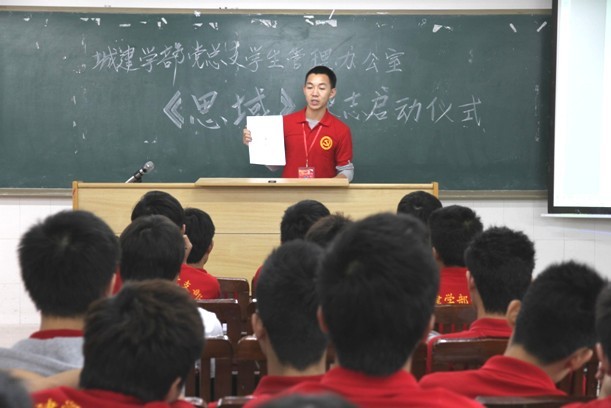 城建学部党总支学生管理办公室
《思域》志启动仪式
建学部